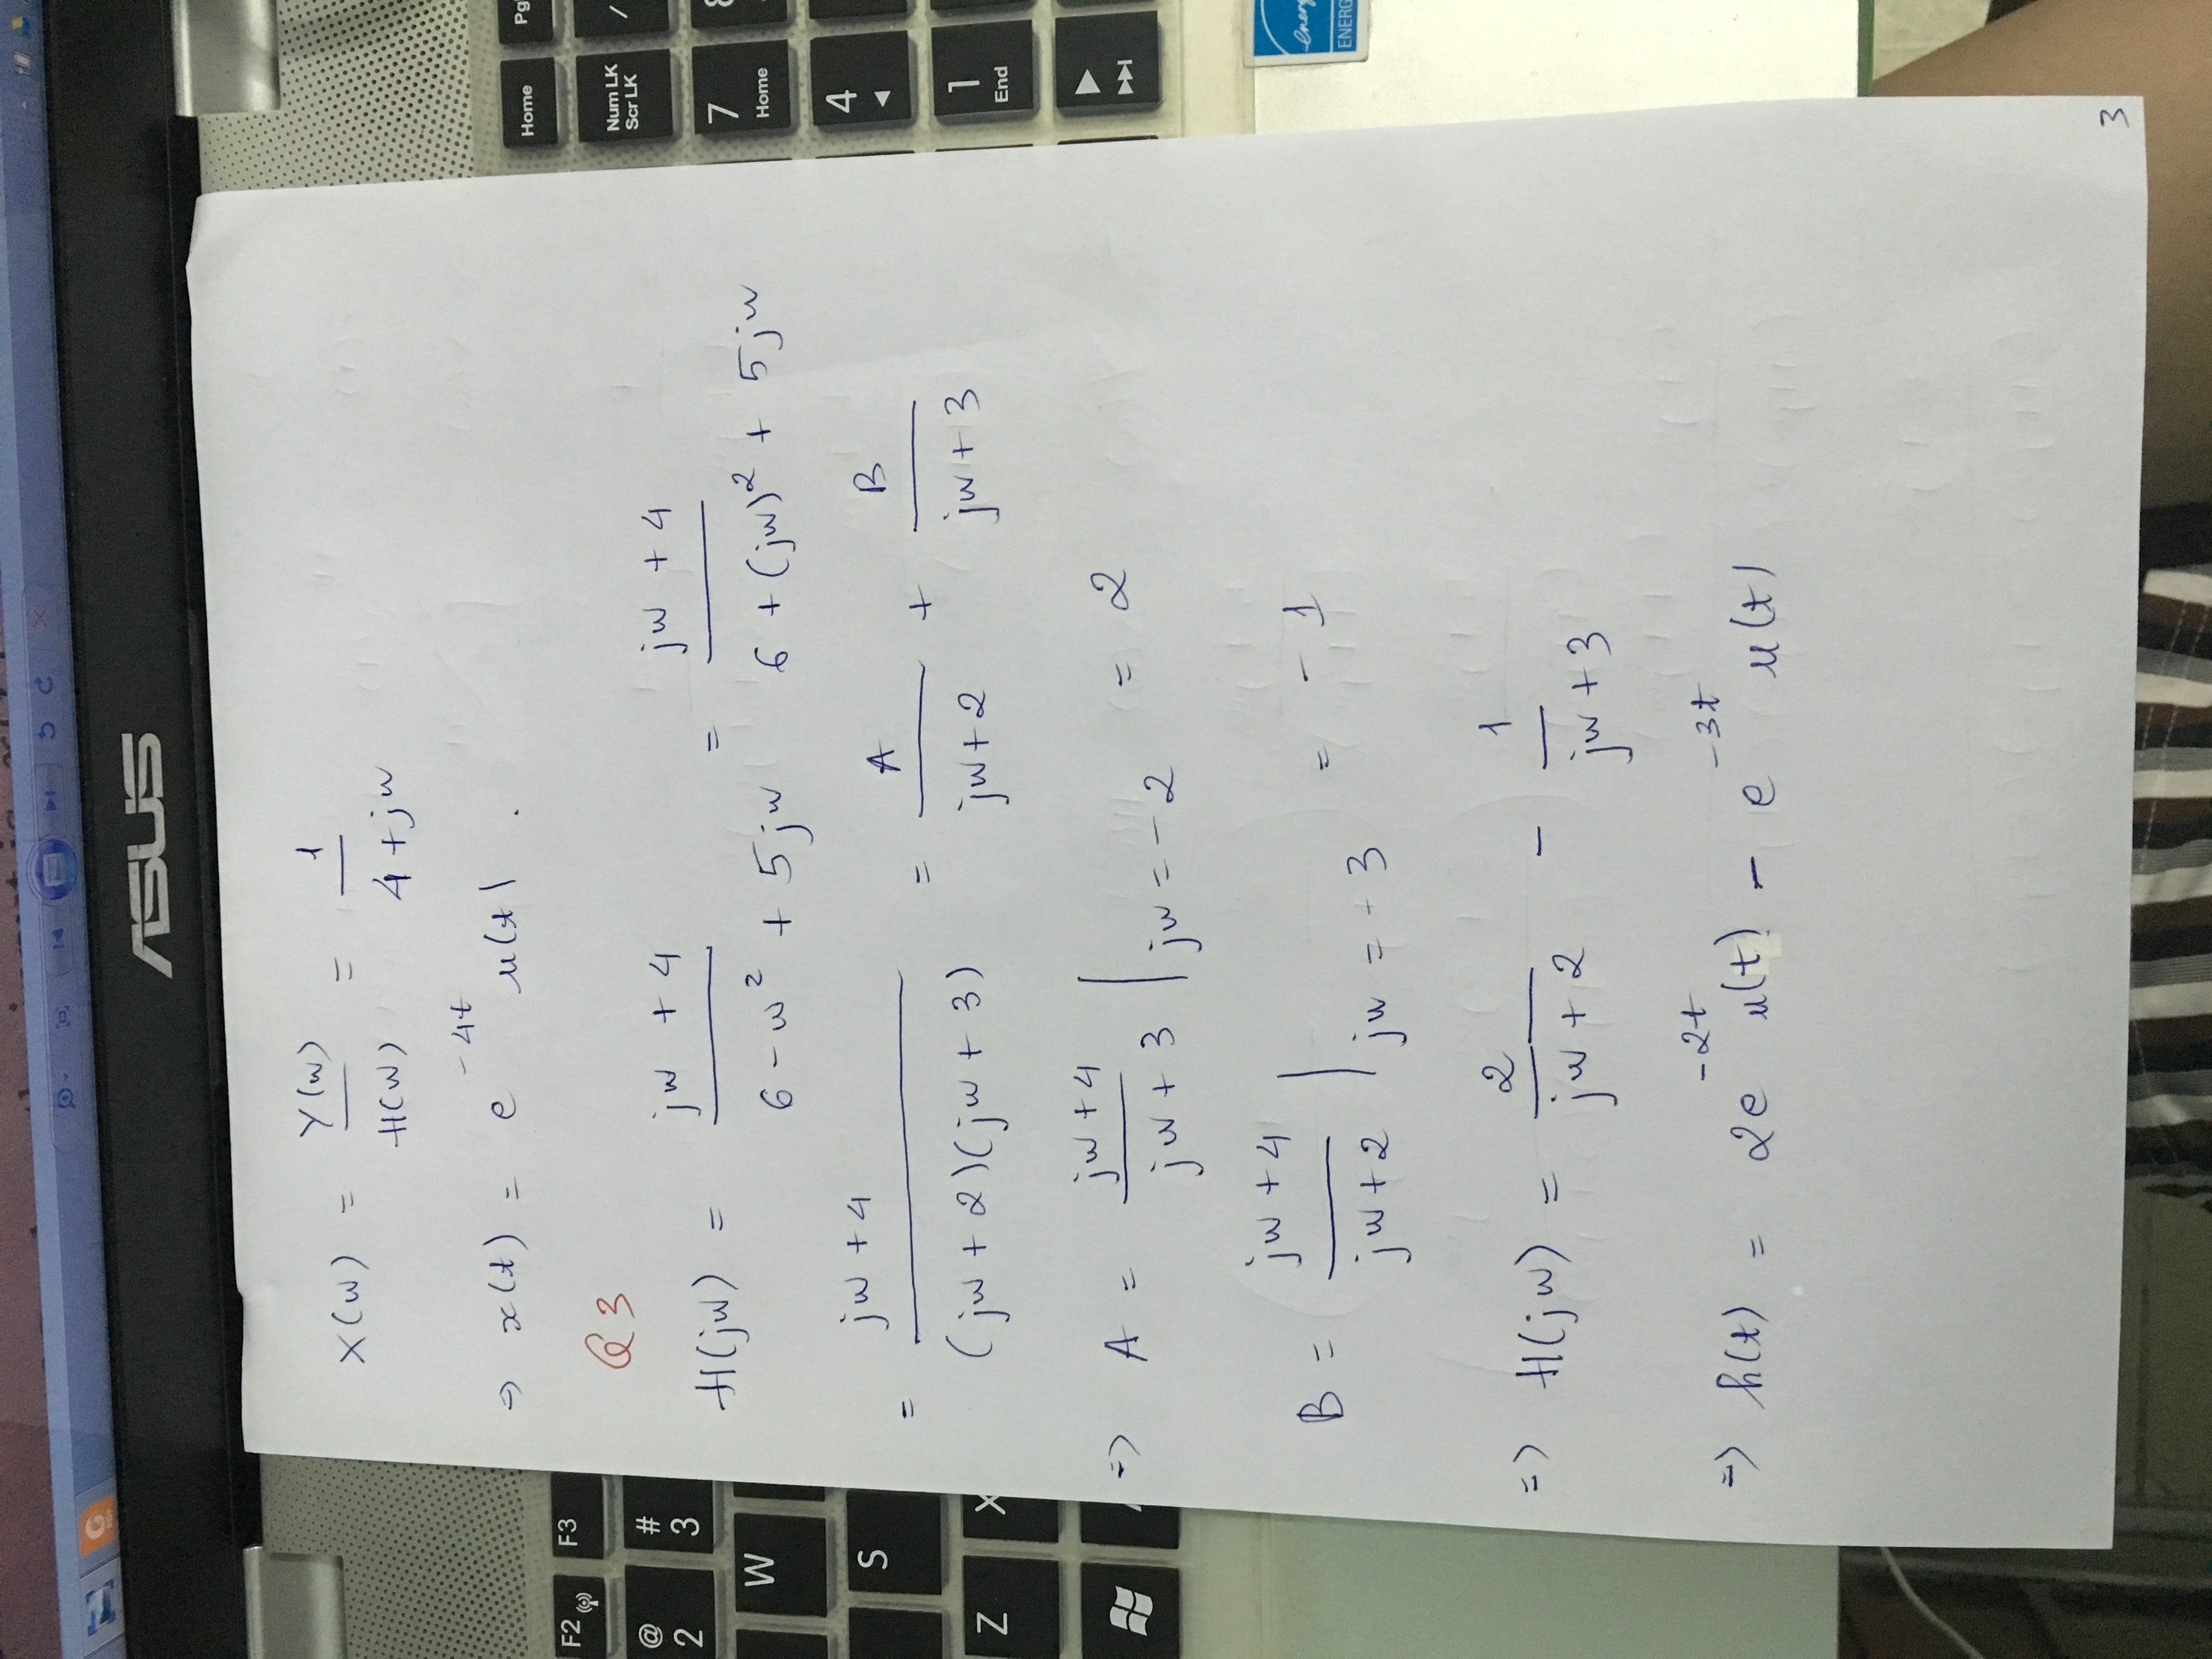 ASUS
X(w) = Y(w) / H(w) = 1 / 4 + jw
⇒ x(t) = e^-4t u(t) .
Q3
H(jw) = jw + 4 / 6 - w² + 5jw = jw + 4 / 6 + (jw)² + 5jw
= jw + 4 / (jw + 2)(jw + 3) = A / jw + 2 + B / jw + 3
=> A = jw + 4 / jw + 3 | jw = -2 = 2
B = jw + 4 / jw + 2 | jw = -3 = -1
=> H(jw) = 2 / jw + 2 - 1 / jw + 3
=> h(t) = 2e^-2t u(t) - e^-3t u(t)
3
F2
F3
@
2
#
3
W
S
Z
X
Home
Num LK
Scr LK
/
7
Home
4
1
End
energy
ENERG
PDF